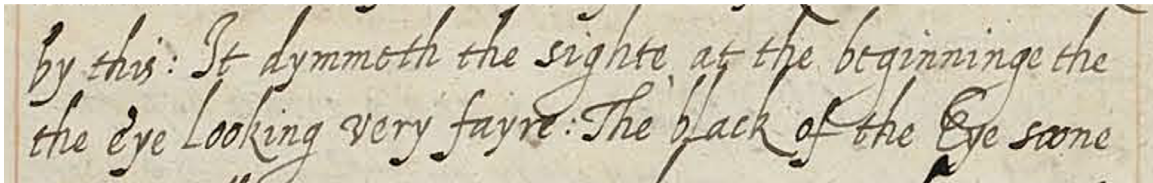 by this: It dymmeth the sighte at the beginninge the
the eye looking very fayre: The black of the Eye soone